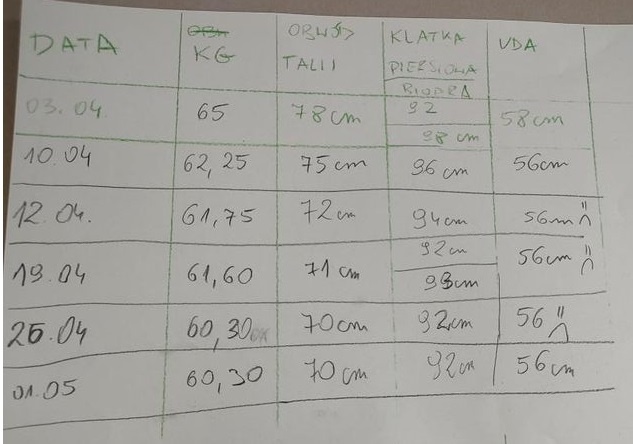 DATA KG OBWÓD TALII KLATKA PIERSIOWA BIODRA UDA
03.04 65 78cm 92 98 cm 58cm
10.04 62,25 75cm 96 cm 56cm
12.04. 61,75 72cm 94cm 56cm
19.04 61,60 71cm 92cm 93cm 56cm
26.04 60,30 70cm 92cm 56
01.05 60,30 70cm 92cm 56cm